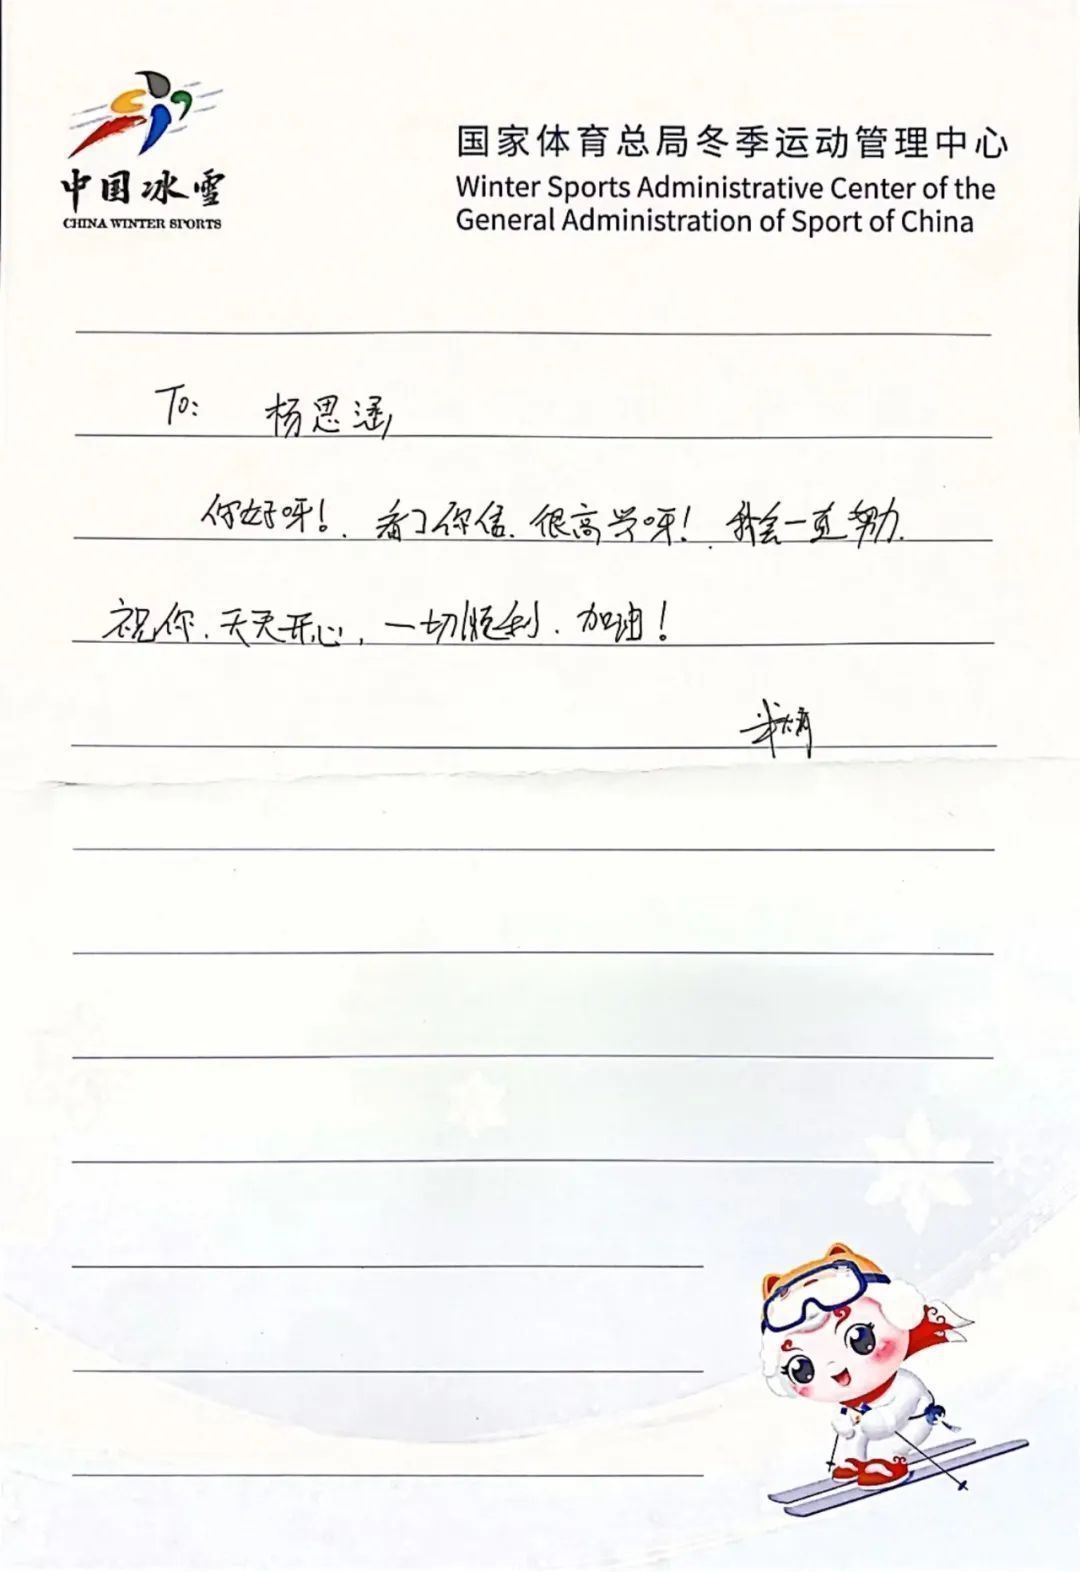 中国冰雪
CHINA WINTER SPORTS
国家体育总局冬季运动管理中心
Winter Sports Administrative Center of the
General Administration of Sport of China
To: 杨思涵
你好呀！看了你信.很高兴呀！我会一直努力.
祝你.天天开心,一切顺利.加油！